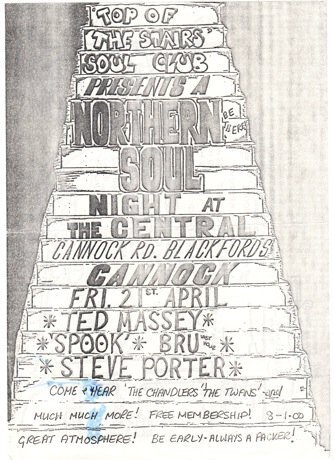 TOP OF
THE STAIRS
SOUL CLUB
PRESENTS A
NORTHERN
BE THERE!
SOUL
NIGHT AT
THE CENTRAL
CANNOCK RD. BLACKFORDS
CANNOCK
FRI. 21ST. APRIL
*TED MASSEY*
*'SPOOK' BRU*
*STEVE PORTER*
COME & HEAR THE CHANDLERS 'THE TWANS' and
MUCH MUCH MORE! FREE MEMBERSHIP! 8-1.00
GREAT ATMOSPHERE! BE EARLY-ALWAYS A PACKER!